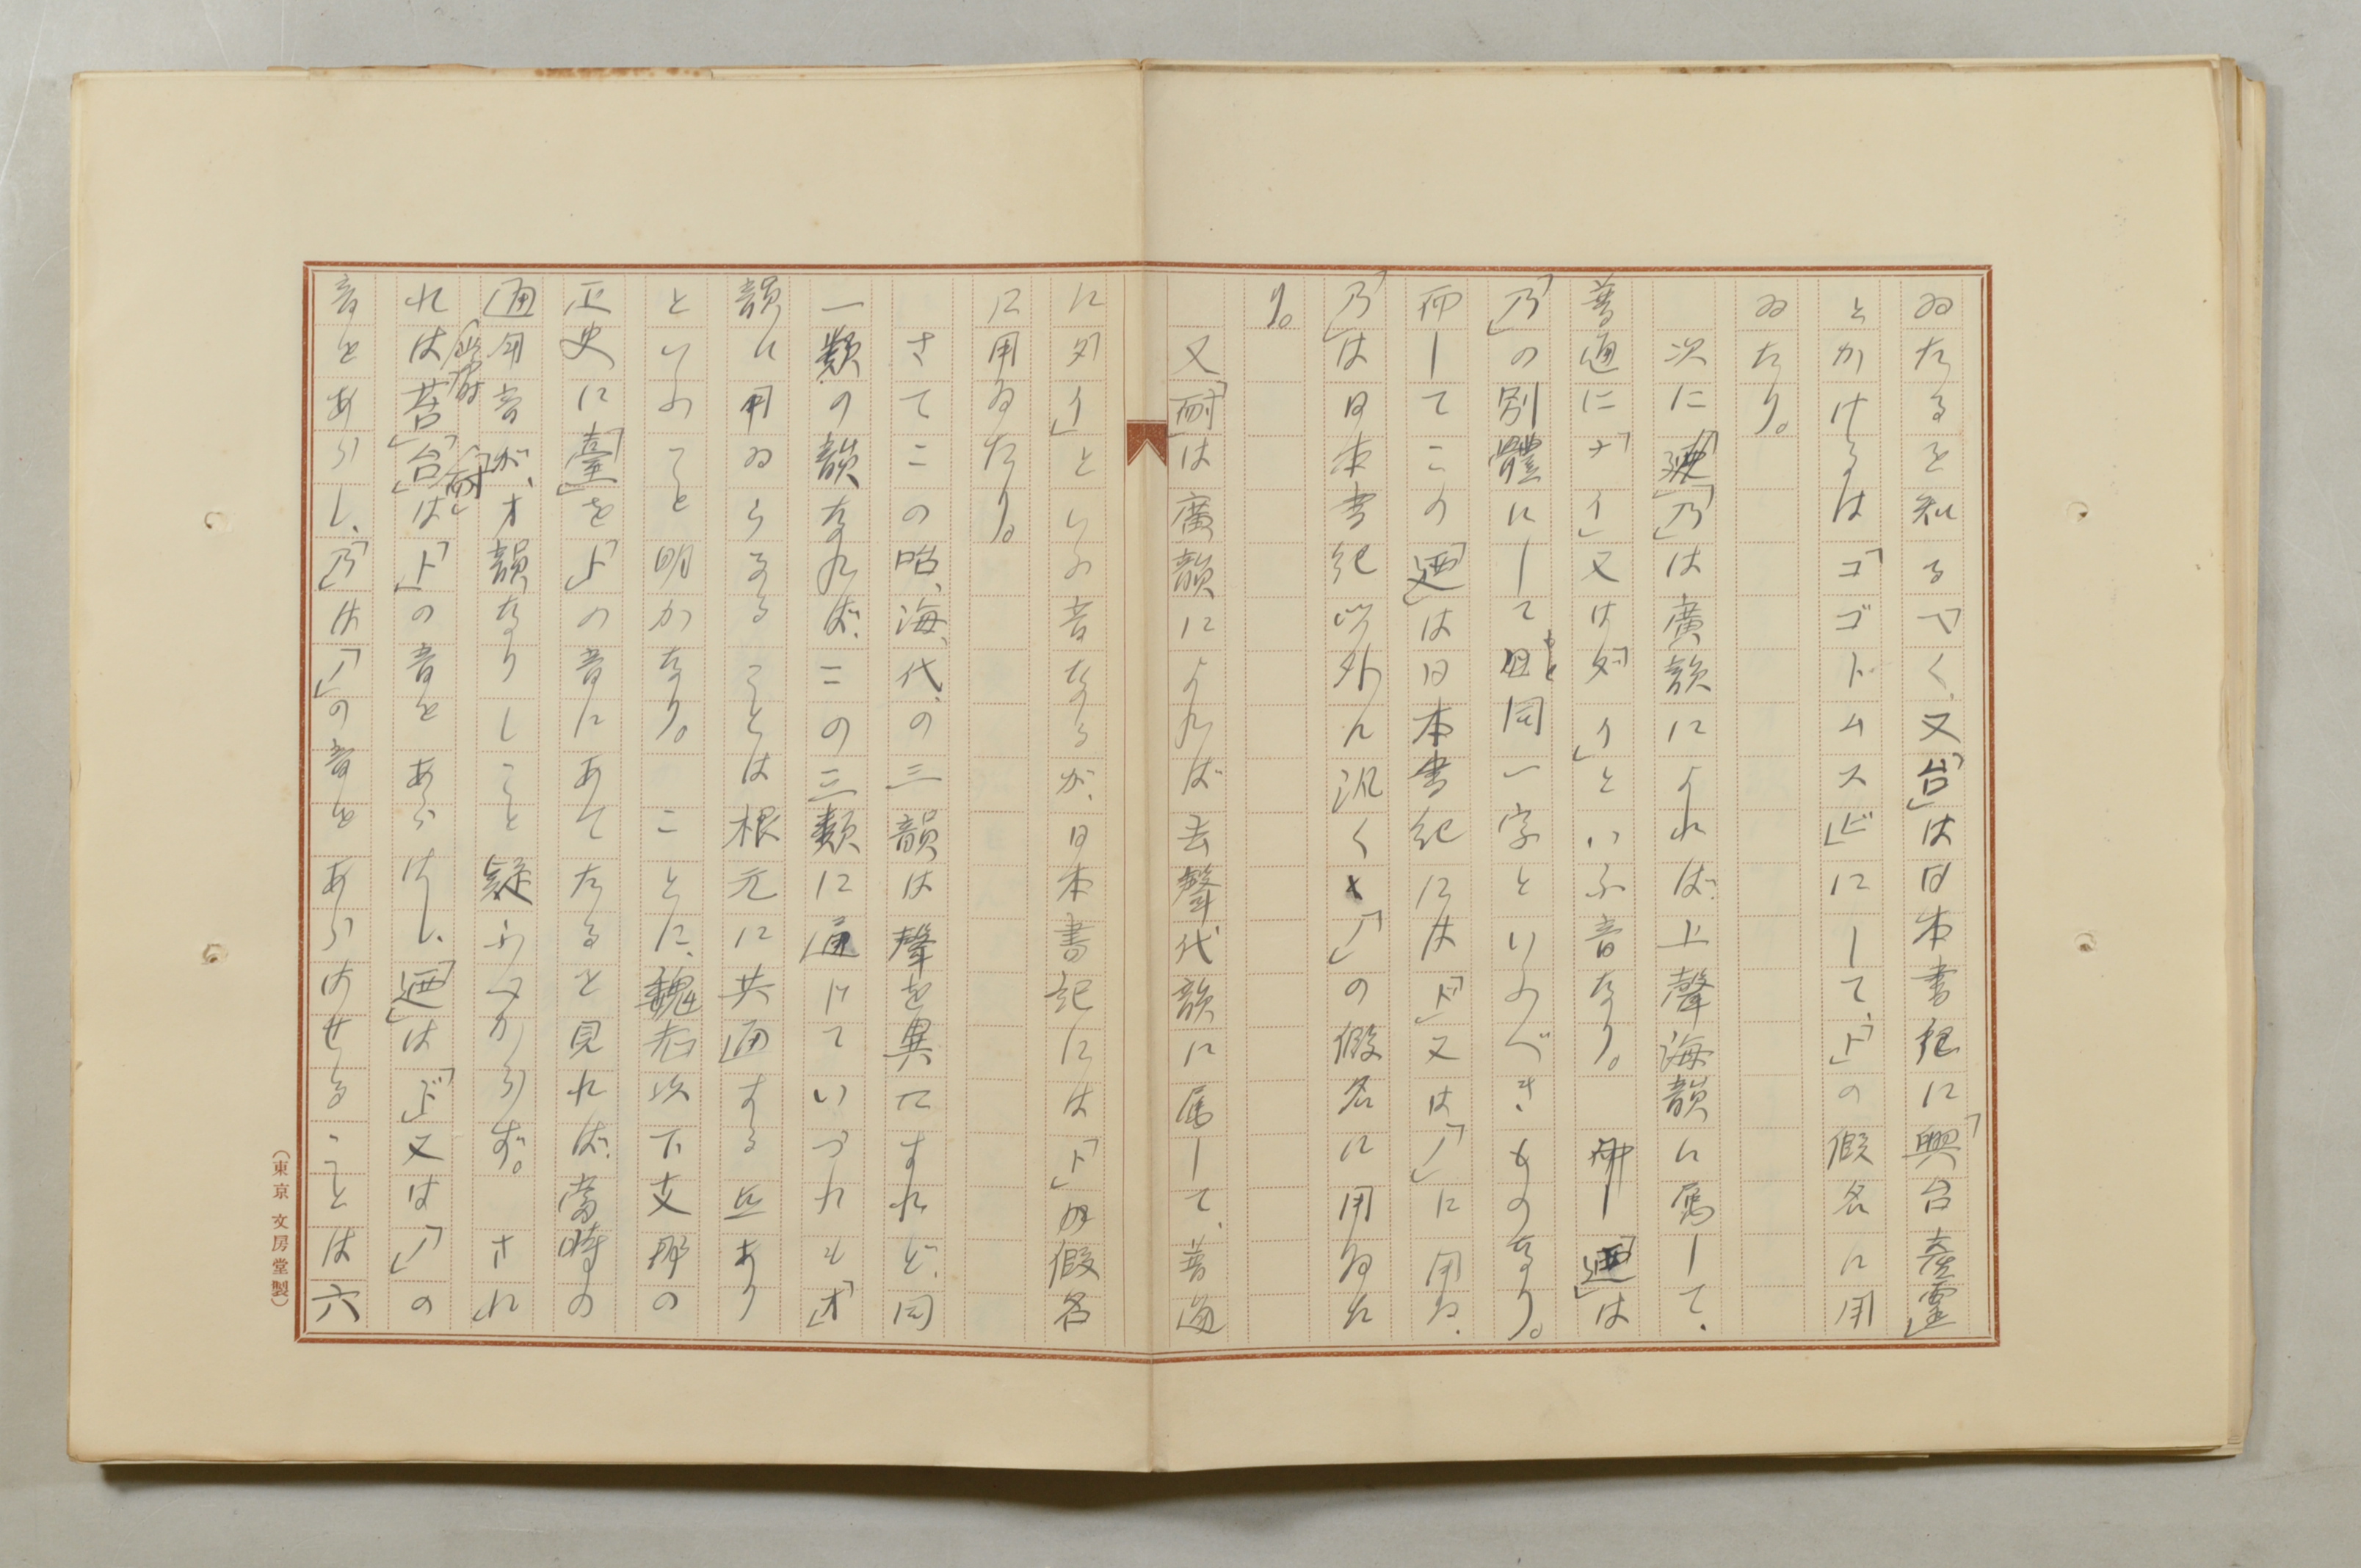 ゐたるを知るべく、又「台」は日本書紀に「興台産靈」
とかけるは「コゴトムスビ」にして、「ト」の假名に用
ゐたり。
次に「迺」「乃」は廣韻によれば上聲海韻に屬して、
普通に「ナイ」又は「ダイ」といふ音なり。「迺」は
「乃」の別體にしてもと同一字といふべきものなり。
而してこの「迺」は日本書紀には「ド」又は「ノ」に用ゐ、
「乃」は日本書紀以外に汎く「ノ」の假名に用ゐた
り。
又「耐」は廣韻によれば去聲代韻に屬して、普通
に「タイ」といふ音なるが、日本書記には「ト」の假名
に用ゐたり。
さてこの咍、海、代、の三韻は聲を異にすれど、同
一類の韻なれば、この三類に通じていづれも「オ」
韻に用ゐらるることは根元に共通する點あり
といふこと明かなり。 ことに、魏志以下支那の
正史に「臺」を「ト」の音にあてたるを見れば、當時の
通用音が、オ韻なりしこと疑ふべからず。 され
ば苔」「台」「耐」は「ト」の音をあらはし、「迺」は「ド」又は「ノ」の
音をあらし、「乃」は「ノ」の音をあらはせることは六
（東京 文房堂製）